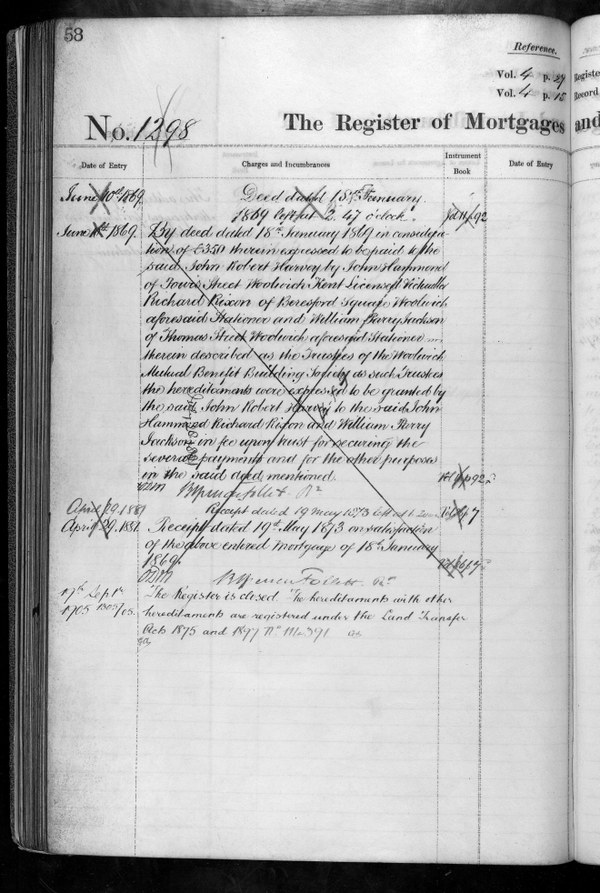 53
Reference.
Vol. 4 p. 29
Vol. 4 p. 15
No. 1298
The Register of Mortgages and
Registe
Record
Date of Entry
Charges and Incumbrances
Instrument Book
Date of Entry
June 10th 1869.
Deed dated 18th January
1869 left at 2.47 o'clock.
92
June 1869. By deed dated 18th January 1869 in considera-
tion of £350 therein expressed to be paid to the
said John Robert Harvey by John Hammond
of Powis Street Woolwich Kent Licensed Victualler
Richard Rixon of Beresford Square Woolwich
aforesaid Stationer and William Perry Jackson
of Thomas Street Woolwich aforesaid Stationer
therein described as the Trustees of the Woolwich
Mutual Benefit Building Society as such Trustees
the hereditaments were expressed to be granted by
the said John Robert Harvey to the said John
Hammond Richard Rixon and William Perry
Jackson in fee upon trust for securing the
several payments and for the other purposes
in the said deed mentioned.
92
B Spencer Follett Rr
April 29. 1881
Receipt dated 19 May 1873 left at
47
April 29. 1881. Receipt dated 19th May 1873 on satisfaction
of the above entered mortgage of 18th January
1869.
B Spencer Follett Rr
17th Sept
1905
The Register is closed. The hereditaments with other
hereditaments are registered under the Land Transfer
Acts 1875 and 1897 No